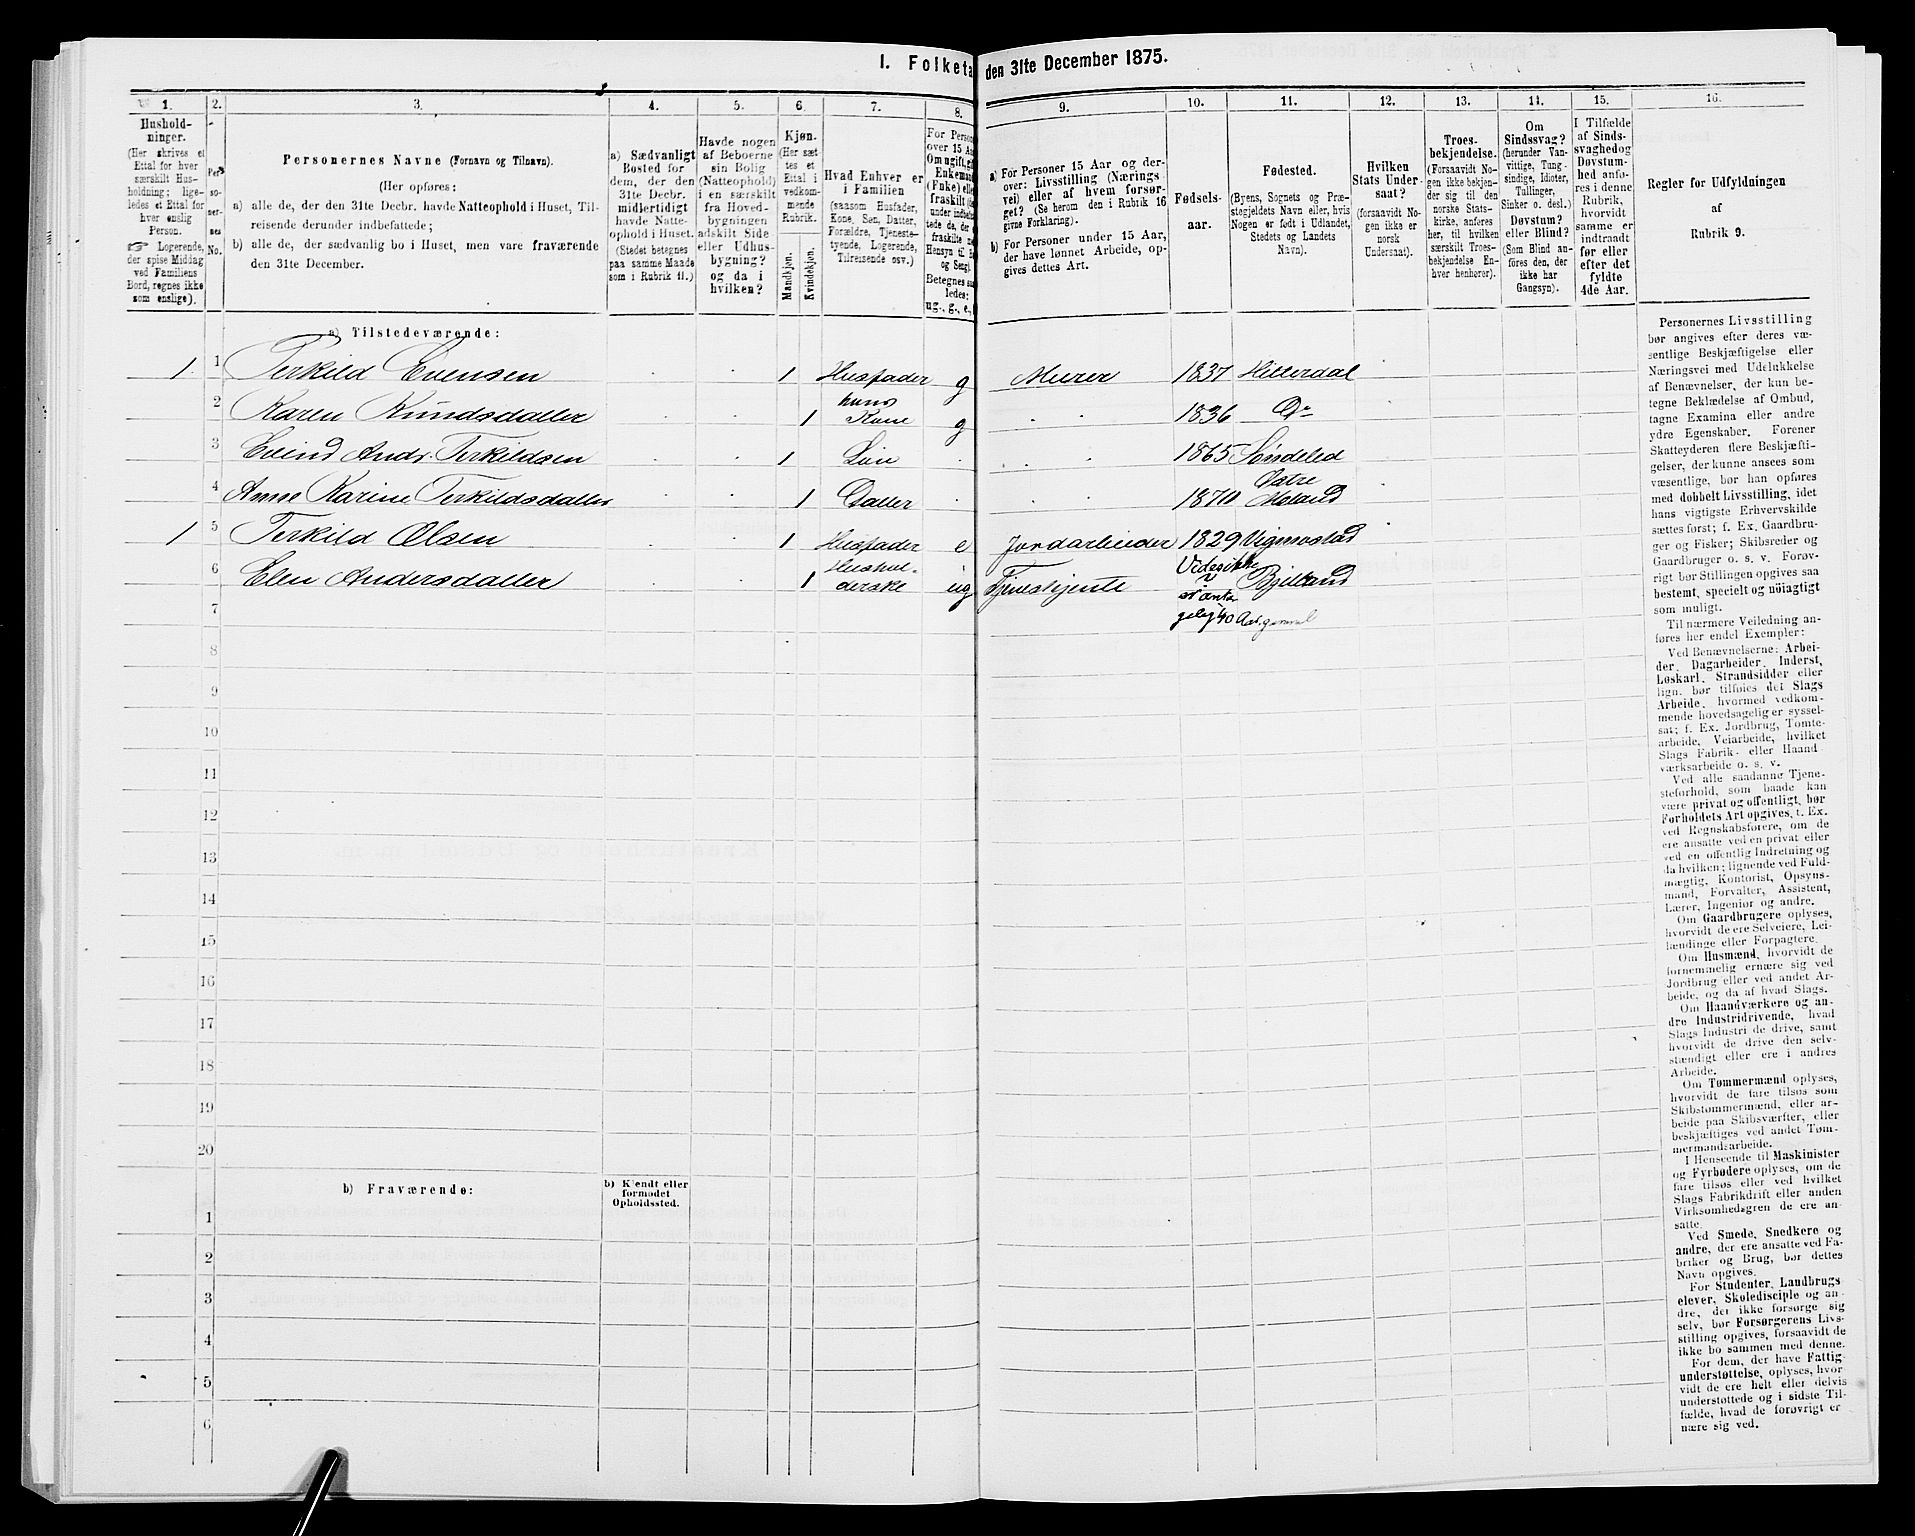 I. Folketa den 31te December 1875.
1. 2. 3. 4. 5. 6. 7. 8. 9. 10. 11. 12. 13. 14. 15. 16.
Hushold-
ninger.
(Her skrives et
Ettal for hver
særskilt Hus-
holdning; lige-
ledes et Ettal for
hver enslig
Person.
☞ Logerende,
der spise Middag
ved Familiens
Bord, regnes ikke
som enslige).
Per-
so-
ner-
nes
No.
Personernes Navne (Fornavn og Tilnavn).
(Her opføres:
a) alle de, der den 31te Decbr. havde Natteophold i Huset, Til-
reisende derunder indbefattede;
b) alle de, der sædvanlig bo i Huset, men vare fraværende
den 31te December.
a) Sædvanligt
Bosted for
dem, der den
31te Decbr.
midlertidigt
havde Natte-
ophold i Huset.
(Stedet betegnes
paa samme Maade
som i Rubrik 11.)
Havde nogen
af Beboerne
sin Bolig
(Natteophold)
i en særskilt
fra Hoved-
bygningen
adskilt Side-
eller Udhus-
bygning?
og da i
hvilken?
Kjøn.
(Her sæt-
tes et
Ettal i
vedkom-
mende
Rubrik.
Mandkjøn.
Kvindekjøn.
Hvad Enhver er
i Familien
(saasom Husfader,
Kone, Søn, Datter,
Forældre, Tjeneste-
tyende, Logerende,
Tilreisende osv.)
For Person
over 15 Aar
Om ugift, gif
Enkemand
(Enke) elle
fraskilt
under indbefa
tede de, der
fraskilte
Hensyn til B
og Seng).
Betegnes saa
ledes:
ug., g., e.,
a) For Personer 15 Aar og der-
over: Livsstilling (Nærings-
vei) eller af hvem forsør-
get? (Se herom den i Rubrik 16
givne Forklaring).
b) For Personer under 15 Aar,
der have lønnet Arbeide, op-
gives dettes Art.
Fødsels-
aar.
Fødested.
(Byens, Sognets og Præ-
stegjeldets Navn eller, hvis
Nogen er født i Udlandet,
Stedets og Landets
Navn).
Hvilken
Stats Under-
saat?
(forsaavidt No-
gen ikke er
norsk
Undersaat).
Troes-
bekjendelse.
(Forsaavidt No-
gen ikke bekjen-
der sig til den
norske Stats-
kirke, anføres
her, til hvilken
særskilt Troes-
bekjendelse En-
hver henhører).
Om
Sindssvag?
(herunder Van-
vittige, Tung-
sindige, Idioter,
Tullinger,
Sinker o. desl.)
Døvstum?
eller Blind?
(Som Blind an-
føres den, der
ikke har
Gangsyn).
I Tilfælde
af Sinds-
svaghed og
Døvstum-
hed anfø-
res i denne
Rubrik,
hvorvidt
samme er
indtraadt
før eller
efter det
fyldte
4de Aar.
Regler for Udfyldningen
af
Rubrik 9.
a) Tilstedeværende:
1 1 Terkild Evensen 1 Husfader g Murer 1837 Hitterdal
2 Karen Knudsdatter 1 hans Kone g 1836 Do
3 Eivind Andr. Terkildsen 1 Søn 1865 Søndeled
4 Anne Karine Terkildsdatter 1 Datter 1870 Østre Moland
1 5 Terkild Olsen 1 Husfader e Jordarbeider 1829 Vigmostad
6 Elen Andersdatter 1 Hushol-
derske ug Tjenestjente Vides ikke Bjelland
er anta
gelig 40 Aar gammel
7
8
9
10
11
12
13
14
15
16
17
18
19
20
b) Fraværende:
b) Kjendt eller
formodet
Opholdssted.
1
2
3
4
5
6
Personernes Livsstilling
bør angives efter deres væ-
sentlige Beskjæftigelse eller
Næringsvei med Udelukkelse
af Benævnelser, der kun be-
tegne Beklædelse af Ombud,
tagne Examina eller andre
ydre Egenskaber. Forener
Skatteyderen flere Beskjæfti-
gelser, der kunne ansees som
væsentlige, bør han opføres
med dobbelt Livsstilling, idet
hans vigtigste Erhvervskilde
sættes først; f. Ex. Gaardbru-
ger og Fisker; Skibsreder og
Gaardbruger o. s. v. Forøv-
rigt bør Stillingen opgives saa
bestemt, specielt og nøiagtigt
som muligt.
Til nærmere Veiledning an-
føres her endel Exempler:
Ved Benævnelserne: Arbei-
der, Dagarbeider, Inderst,
Løskarl, Strandsidder eller
lign. bør tilføies det Slags
Arbeide, hvormed vedkom-
mende hovedsagelig er syssel-
sat; f. Ex. Jordbrug, Tomte-
arbeide, Veiarbeide, hvilket
Slags Fabrik- eller Haand-
værksarbeide o. s. v.
Ved alle saadanne Tjene-
steforhold, som baade kan
være privat og offentligt, bør
Forholdets Art opgives, t. Ex.
ved Regnskabsførere, om de
ere ansatte ved en privat eller
ved en offentlig Indretning og
da hvilken; lignende ved Fuld-
mægtig, Kontorist, Opsyns-
mand, Forvalter, Assistent,
Lærer, Ingeniør og andre.
Om Gaardbrugere oplyses,
hvorvidt de ere Selveiere, Lei-
lændinge eller Forpagtere.
Om Husmænd, hvorvidt de
fornemmelig ernære sig ved
Jordbrug eller ved andet Ar-
beide, og da af hvad Slags.
Om Haandværkere og an-
dre Industridrivende, hvad
Slags Industri de drive, samt
hvorvidt de drive den selv-
stændigt eller ere i andres
Arbeide.
Om Tømmermænd oplyses,
hvorvidt de fare tilsøs som
Skibstømmermænd, eller ar-
beide paa Skibsværfter, eller
beskjæftiges ved andet Tøm-
mermandsarbeide.
I Henseende til Maskinister
og Fyrbødere oplyses, om de
fare tilsøs eller ved hvilket
Slags Fabrikdrift eller anden
Virksomhedsgren de ere an-
satte.
Ved Smede, Snedkere og
andre, der ere ansatte ved Fa-
briker og Brug, bør dettes
Navn opgives.
For Studenter, Landbrugs-
elever, Skoledisciple og an-
dre, der ikke forsørge sig
selv, bør Forsørgerens Livs-
stilling opgives, forsaavidt de
ikke bo sammen med denne.
For dem, der have Fattig-
understøttelse, oplyses, hvor-
vidt de ere helt eller delvis
understøttede og i sidste Til-
fælde, hvad de forøvrigt er-
nære sig ved.